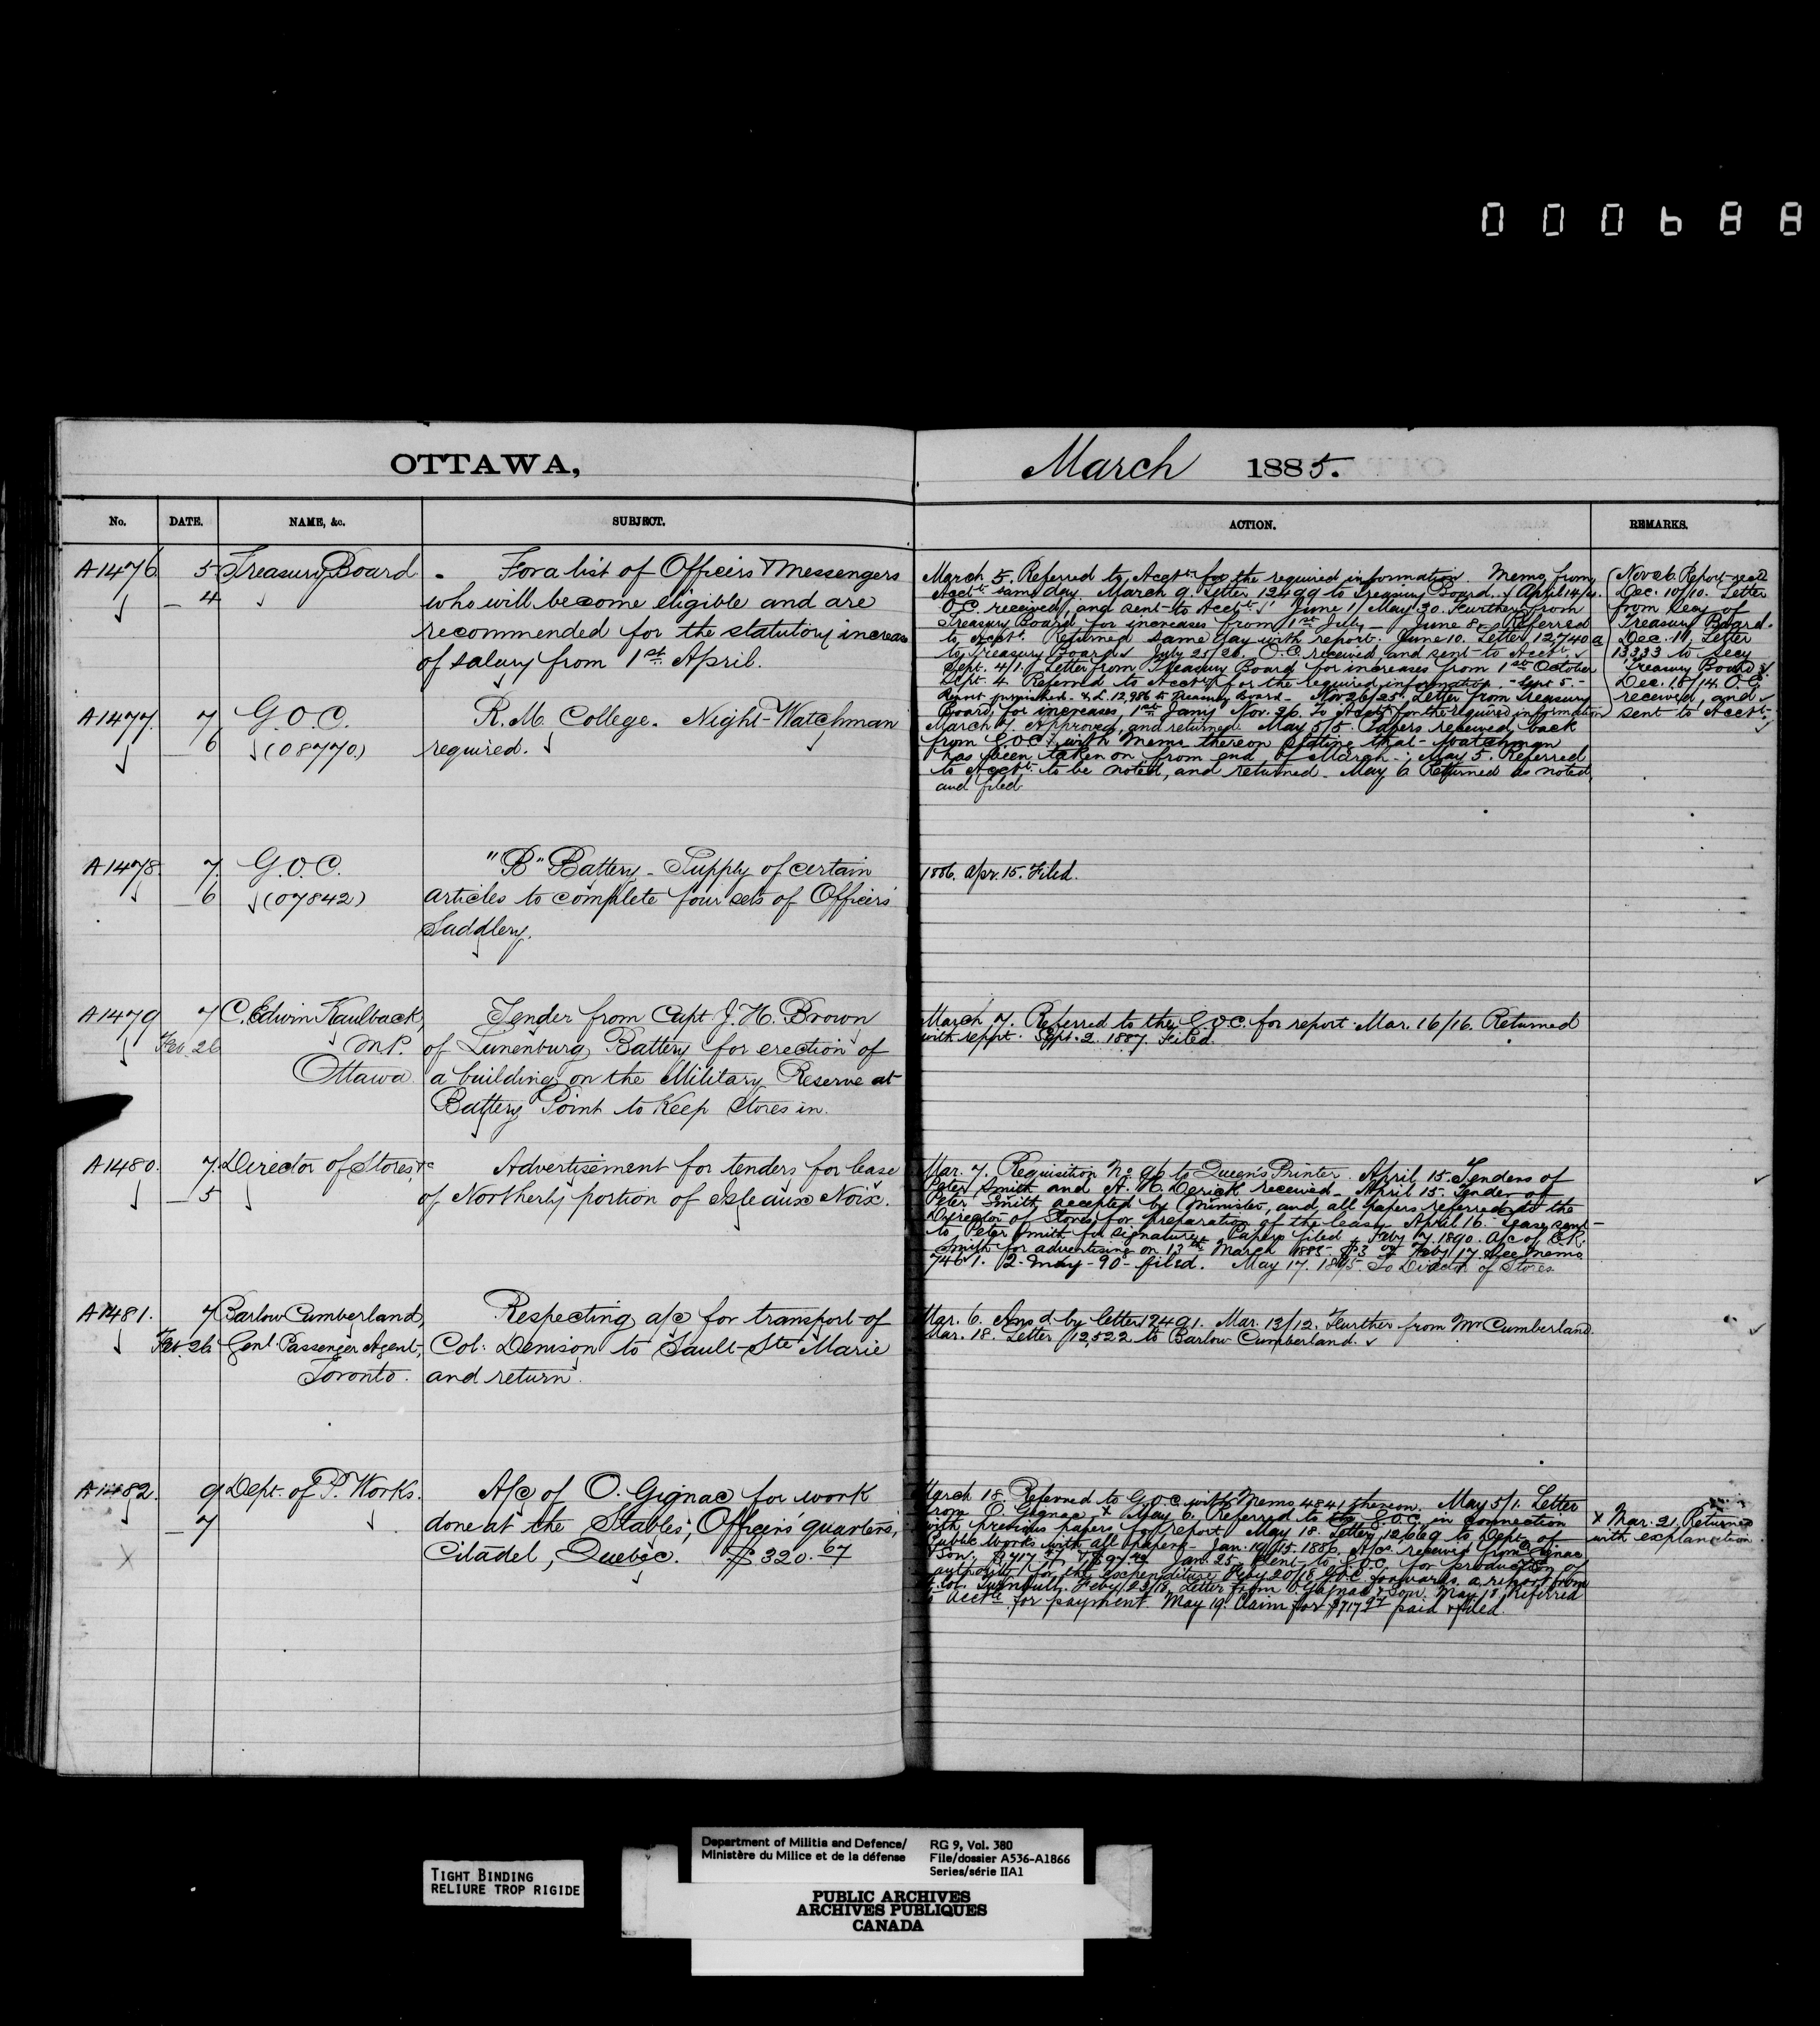 000688
OTTAWA,
March 1885.
No. DATE. NAME, &c. SUBJECT. ACTION. REMARKS.
A1476 5 Treasury Board - For a list of Officers & Messengers
4 who will become eligible and are
recommended for the statutory increase
of salary from 1st April.
March 5. Referred to Acctt. for the required information. Memo from
Acctt. same day. March 9. Letter 12499 to Treasury Board. April 14/4.
O.C. received, and sent to Acctt. June 1/May 30. Further from
Treasury Board for increases from 1st July - June 8. Referred
to Acctt. Returned same day with report. June 10. Letter 12740
to Treasury Board July 25/26. O.C. received and sent to Acctt.
Sept. 4/1. Letter from Treasury Board for increases from 1st October
Sept. 4. Referred to Acctt. for the required information. - Sept 5. -
Report furnished - & L. 12,986 to Treasury Board - Nov 26/25. Letter from Treasury
Board for increases, 1st Jany Nov. 26. To Acctt. for the required information
(Nov 26. Report recd
Dec. 10/10. Letter
from Secy of
Treasury Board.
Dec. 11, Letter
13333 to Secy
Treasury Board
Dec. 18/14. O.C.
received, and
sent to Acctt.
A1477. 7 G.O.C. R. M. College. Night-Watchman
6 (08770) required.
March 7. Approved, and returned. May 5/5. Papers received back
from G.O.C. with Memo thereon stating that - Watchman
has been taken on from end of March - May 5. Referred
to Acctt. to be noted, and returned - May 6. Returned as noted,
and filed
A1478. 7. G.O.C. "B" Battery - Supply of certain
6 (07842) articles to complete four sets of Officers'
Saddlery.
1886. Apr. 15. Filed.
A1479 7 C. Edwin Kaulback, Tender from Capt. J. H. Brown
Feb. 26 M.P. of Lunenburg Battery for erection of
Ottawa a building on the Military Reserve at
Battery Point to keep stores in.
March 7. Referred to the G.O.C. for report. Mar. 16/16. Returned
with report. Sept. 2. 1887. Filed.
A1480. 7. Director of Stores, &c Advertisement for tenders for lease
5 of Northerly portion of Isle aux Noix.
Mar. 7. Requisition No 96 to Queen's Printer. April 15. Tenders of
Peter Smith and A. H. Derick received - April 15. Tender of
Peter Smith accepted by Minister, and all papers referred to the
Director of Stores, for preparation of the lease. April 16. Lease sent
to Peter Smith for signature. Papers filed. Feby 7. 1890. A/c of C.R.
Smith for advertising on 13th March 1885. $3 Feby 17. See memo
7461. 2 - May - 90 - filed. May 17. 1895. To Director of Stores
A1481. 7 Barlow Cumberland, Respecting a/c for transport of
Feb. 26 Genl. Passenger Agent, Col. Denison to Sault-Ste Marie
Toronto. and return.
Mar. 6. Ansd by letter 12491. Mar. 13/12. Further from Mr Cumberland.
Mar. 18. Letter 12,522 to Barlow Cumberland.
A1482. 9 Dept. of P. Works. A/c of O. Gignac for work
7 done at the Stables, Officers' quarters,
X Citadel, Quebec. $320.67
March 18. Referred to G.O.C. with Memo 4841 thereon. May 5/1. Letter
from O. Gignac X May 6. Referred to the G.O.C. in connection
with previous papers, for report. May 18. Letter 12669 to Dept. of
Public Works with all papers - Jan. 19/15. 1886. A/cs received from Gignac
& Son, Jan. 25. Sent to G.O.C. for production of
authority for the expenditure. Feby 20/18 G.O.C. forwards a report from
Lt. Col. Turnbull. Feby 23/18. Letter from O Gignac & Son. May 18. Referred
to Acctt. for payment. May 19. Claim for $717 97 paid & filed.
X Mar. 21. Returned
with explanation
TIGHT BINDING
RELIURE TROP RIGIDE
Department of Militia and Defence/
Ministère du Milice et de la défense
RG 9, Vol. 380
File/dossier A536-A1866
Series/série IIA1
PUBLIC ARCHIVES
ARCHIVES PUBLIQUES
CANADA